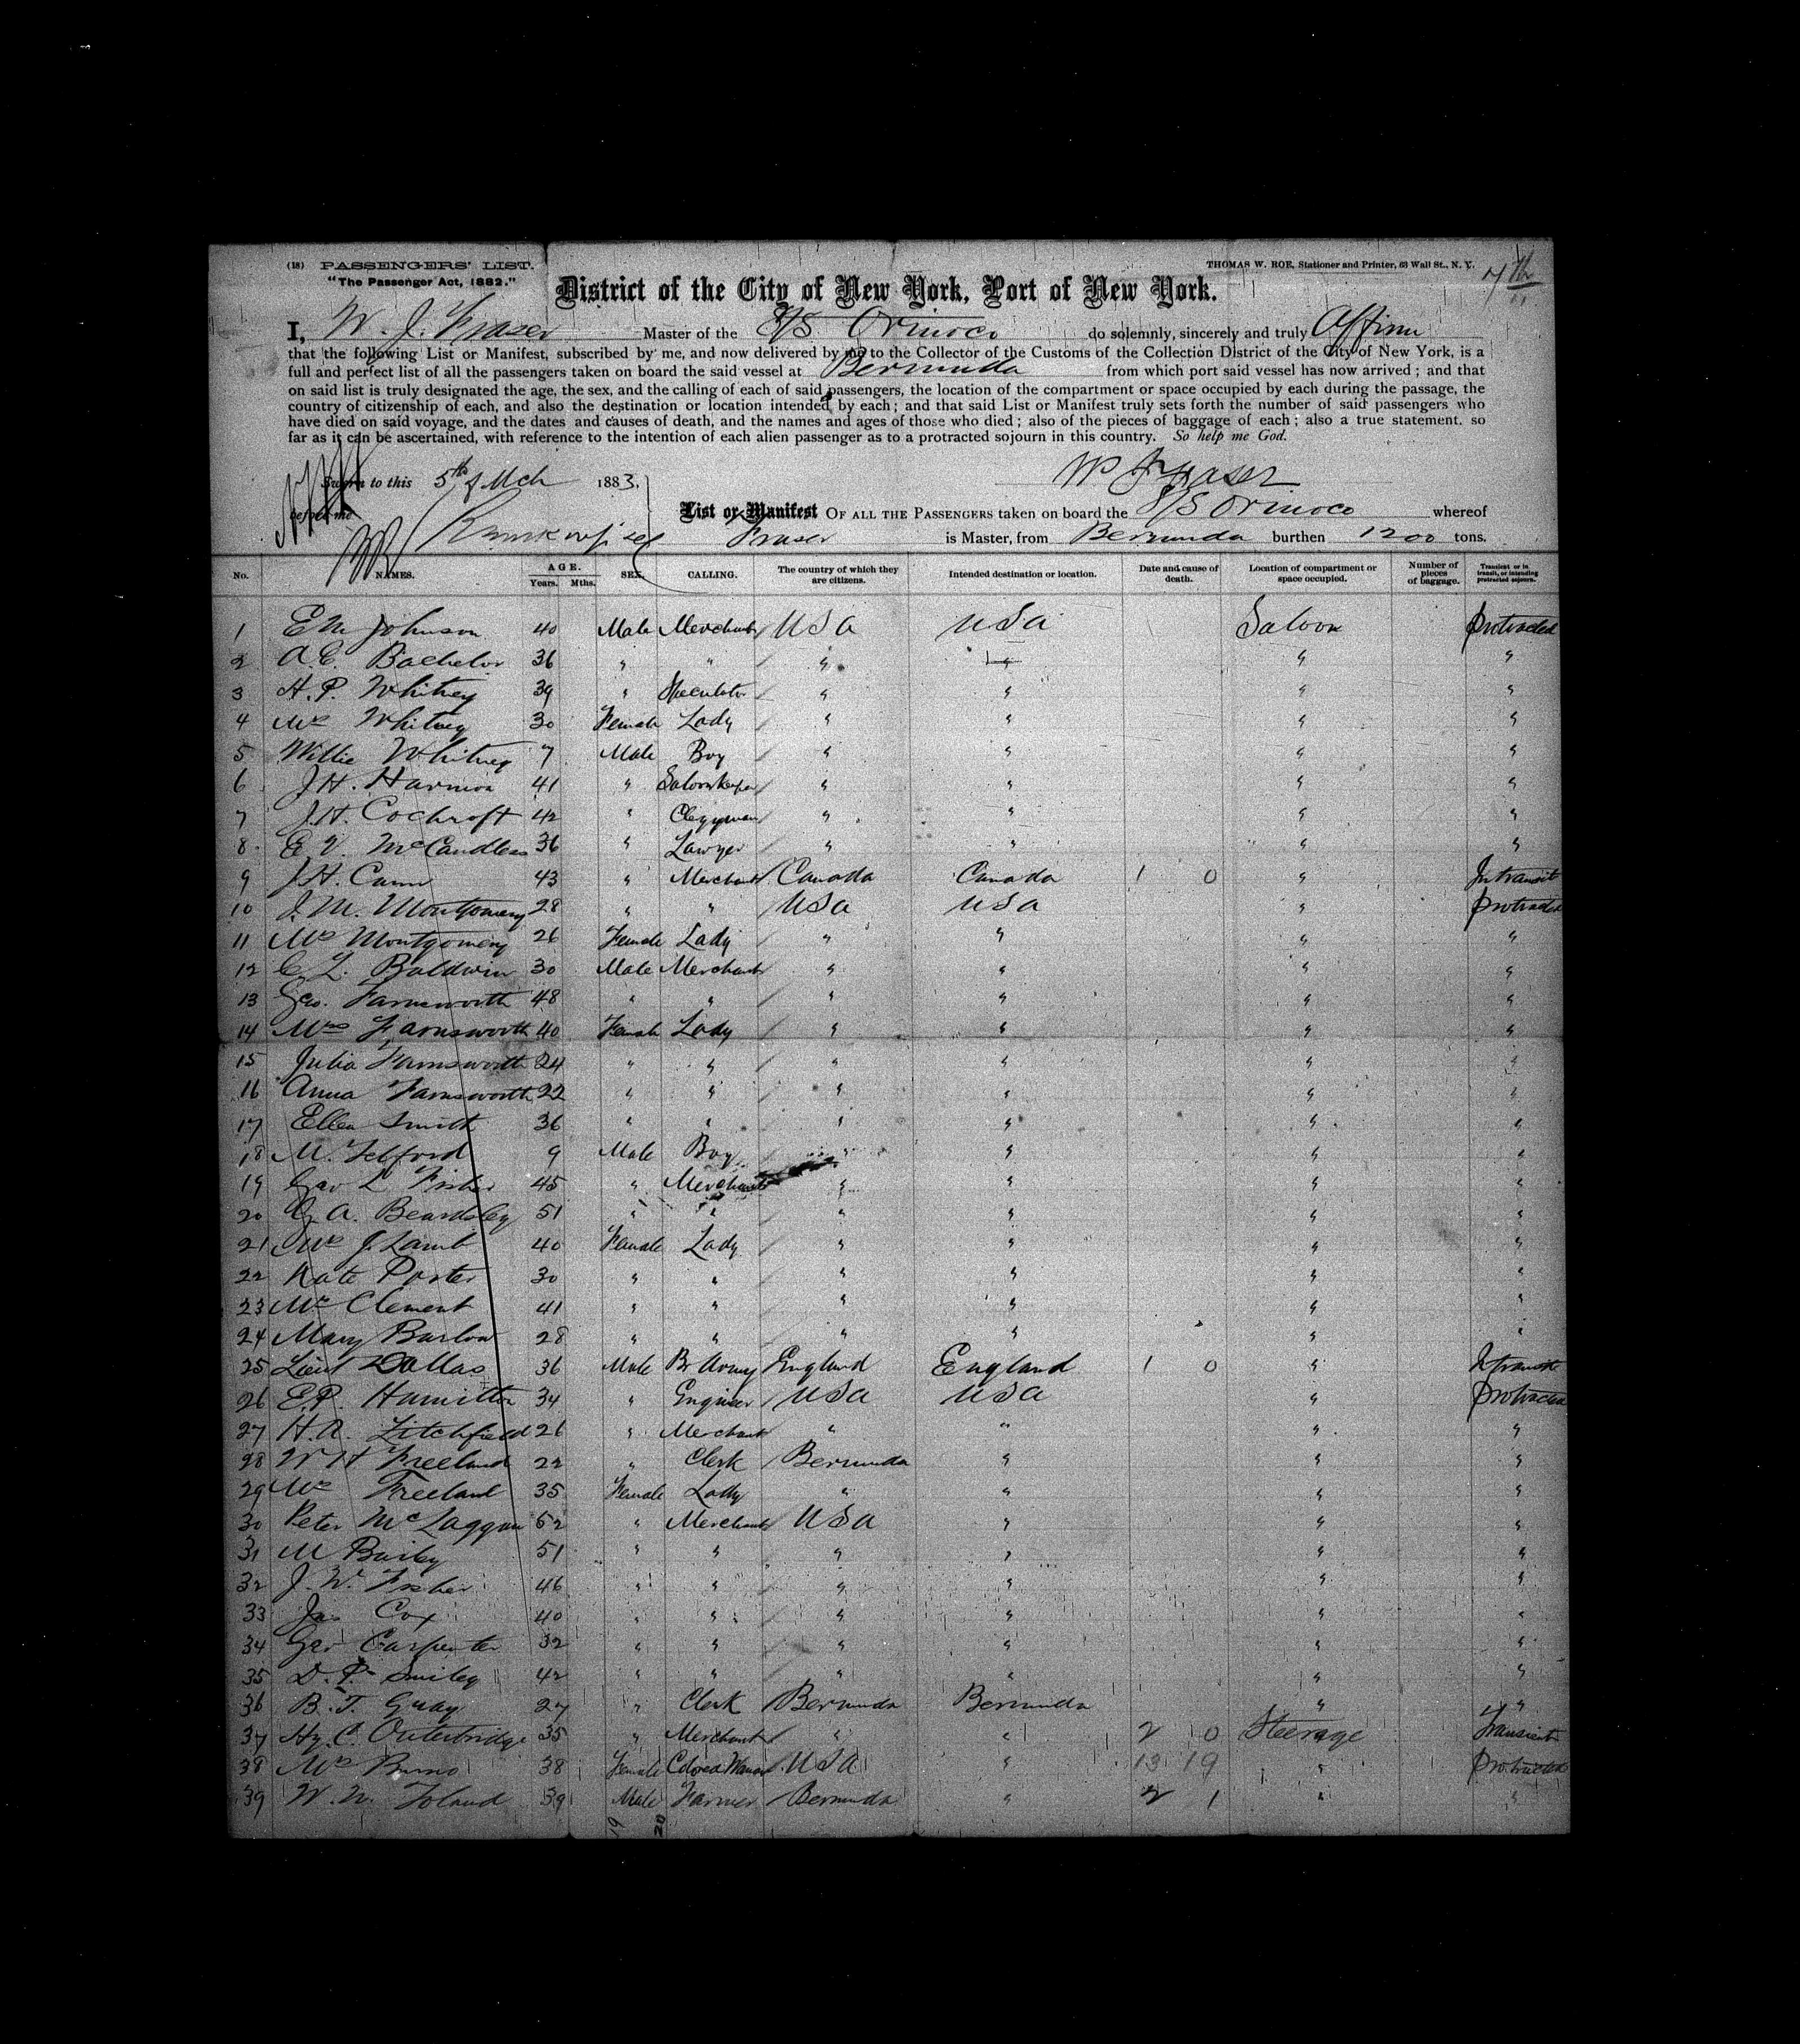 (18) PASSENGERS' LIST.
"The Passenger Act, 1882."
THOMAS W. ROE, Stationer and Printer, 63 Wall St., N. Y.
7th
District of the City of New York, Port of New York.
I, W. J. Fraser Master of the S/S Orinoco do solemnly, sincerely and truly Affirm
that the following List or Manifest, subscribed by me, and now delivered by me to the Collector of the Customs of the Collection District of the City of New York, is a
full and perfect list of all the passengers taken on board the said vessel at Bermuda from which port said vessel has now arrived ; and that
on said list is truly designated the age, the sex, and the calling of each of said passengers, the location of the compartment or space occupied by each during the passage, the
country of citizenship of each, and also the destination or location intended by each ; and that said List or Manifest truly sets forth the number of said passengers who
have died on said voyage, and the dates and causes of death, and the names and ages of those who died ; also of the pieces of baggage of each ; also a true statement, so
far as it can be ascertained, with reference to the intention of each alien passenger as to a protracted sojourn in this country. So help me God.
Sworn to this 5th of Mch 1883. W J Fraser
before me
List or Manifest OF ALL THE PASSENGERS taken on board the S/S Orinoco whereof
Fraser is Master, from Bermuda burthen 1200 tons.
No. NAMES. AGE. Years. Mths. SEX. CALLING. The country of which they are citizens. Intended destination or location. Date and cause of death. Location of compartment or space occupied. Number of pieces of baggage. Transient or in transit, or intending protracted sojourn.
1 E M Johnson 40 Male Merchant USA USA Saloon Protracted
2 A. C. Bachelor 36 " " " " " "
3 H. P. Whitney 39 " Speculator " " " "
4 Mrs Whitney 30 Female Lady " " " "
5 Willie Whitney 7 Male Boy " " " "
6 J H. Harmon 41 " Saloonkeeper " " " "
7 J. H. Cochroft 42 " Clegyman " " " "
8 E V. McCandless 36 " Lawyer " " " "
9 J H. Cann 43 " Merchant Canada Canada 1 0 " In transit
10 J. M. Montgomery 28 " " USA USA " Protracted
11 Mrs Montgomery 26 Female Lady " " " "
12 C L. Baldwin 30 Male Merchant " " " "
13 Geo. Farnsworth 48 " " " " " "
14 Mrs Farnsworth 40 Female Lady " " " "
15 Julia Farnsworth 24 " " " " " "
16 Anna Farnsworth 22 " " " " " "
17 Ellen Smith 36 " " " " " "
18 M. Telford 9 Male Boy " " " "
19 Geo L Fisher 45 " Merchant " " " "
20 G. A. Beardsley 51 " " " " " "
21 Mrs J. Lamb 40 Female Lady " " " "
22 Kate Porter 30 " " " " " "
23 Mrs Clement 41 " " " " " "
24 Mary Barlow 28 " " " " " "
25 Lieut Dallas 36 Male Br Army England England 1 0 " In transit
26 E. P. Hamilton 34 " Engineer USA USA " Protracted
27 H. A. Litchfield 26 " Merchant " " " "
28 W H Freeland 22 " Clerk Bermuda " " "
29 Mrs Freeland 35 Female Lady " " " "
30 Peter McLaggan 52 " Merchant USA " " "
31 M Bailey 51 " " " " " "
32 J. W. Fisher 46 " " " " " "
33 Jas Cox 40 " " " " " "
34 Geo Carpenter 32 " " " " " "
35 D. P. Smiley 42 " " " " " "
36 B. T. Gray 27 " Clerk Bermuda Bermuda " "
37 Hy. C. Outerbridge 35 " Merchant " " 2 0 Steerage Transient
38 Mrs 38 Female Colored Woman USA " 13 19 " Protracted
39 W. W. Toland 39 Male Farmer Bermuda " 2 1 " "
19 20